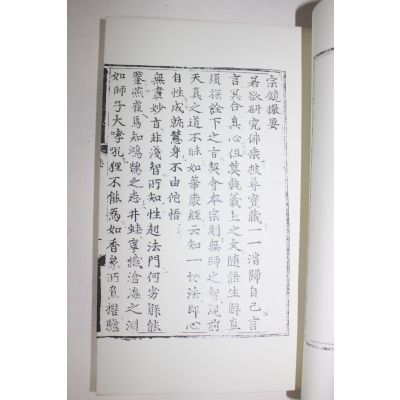 宗鏡撮要
若欲研究佛乘披尋寶藏一一湏歸自己言
言冥合真心但莫執義上之文随語生解直
須探詮下之旨契會本宗則無師之智現前
天真之道不昧如華嚴經云知一切法即心
自性成就慧身不由他悟
無盡妙旨非淺智所知性起法門何劣解能
鑒燕雀焉知鴻鵠之志井蛙寧識滄海之淵
如師子大哮吼狸不能為如香象所負擔驢